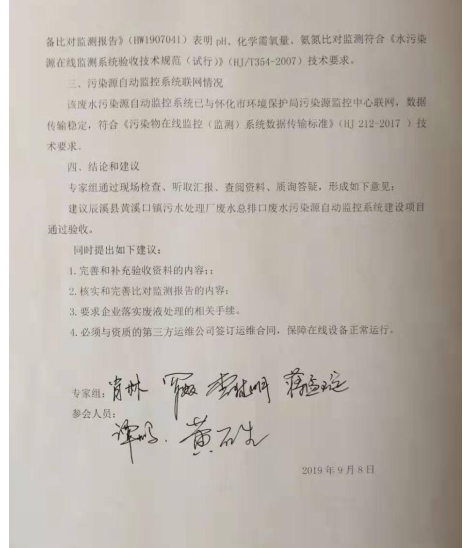 备比对监测报告》（HW1907041）表明 pH、化学需氧量、氨氮比对监测符合《水污染
源在线监测系统验收技术规范（试行）》（HJ/T354-2007）技术要求。
三、污染源自动监控系统联网情况
该废水污染源自动监控系统已与怀化市环境保护局污染源监控中心联网，数据
传输稳定，符合《污染物在线监控（监测）系统数据传输标准》（HJ 212-2017 ）技
术要求。
四、结论和建议
专家组通过现场检查、听取汇报、查阅资料、质询答疑，形成如下意见：
建议辰溪县黄溪口镇污水处理厂废水总排口废水污染源自动监控系统建设项目
通过验收。
同时提出如下建议：
1.完善和补充验收资料的内容；；
2.核实和完善比对监测报告的内容；
3.要求企业落实废液处理的相关手续。
4.必须与资质的第三方运维公司签订运维合同，保障在线设备正常运行。
专家组：肖林
参会人员：
黄石生
2019 年 9 月 8 日